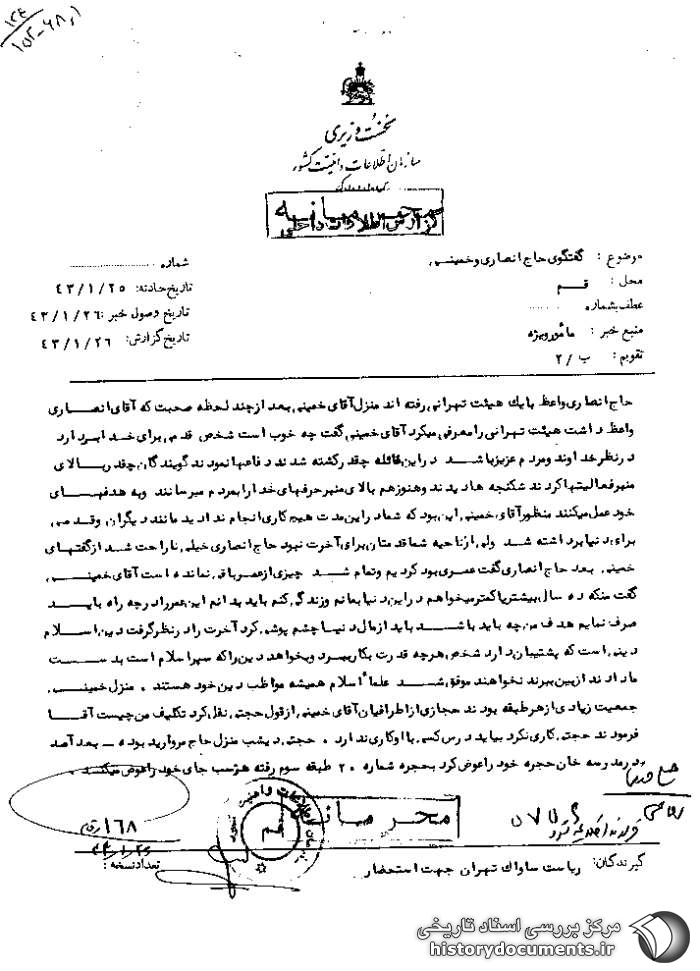 نخست وزیری
سازمان اطلاعات و امنیت کشور
محرمانه
گزارش اطلاعات داخلی
موضوع : گفتگوی حاج انصاری وخمینی
شماره
محل : قم
تاریخ حادثه: ۴۳/۱/۲۵
عطف بشماره
تاریخ وصول خبر : ۴۳/۱/۲۶
منبع خبر : مأمور ویژه
تاریخ گزارش: ۴۳/۱/۲۶
تقویم : ب/۲
حاج انصاری واعظ با یك هیئت تهرانی رفته اند منزل آقای خمینی بعد از چند لحظه صحبت که آقای انصاری
واعظ داشت هیئت تهرانی را معرفی میکرد آقای خمینی گفت چه خوب است شخص قدمی برای خدا بردارد
در نظر خداوند ومردم عزیز باشد در این قائله چقدر کشته شدند دفاعها نمودند گویندگان چقدر بالای
منبر فعالیتها کردند شکنجه ها دیدند وهنوز هم بالای منبر حرفهای خدا را بمردم میرسانند وبه هدفهای
خود عمل میکنند منظور آقای خمینی این بود که شما در این مدت هیچ کاری انجام ندادید مانند دیگران وقدمی
برای دنیا برداشته شد ولی از ناحیه شما قدمتان برای آخرت نبود حاج انصاری خیلی ناراحت شد از گفتهای
خمینی بعد حاج انصاری گفت عمری بود کردیم وتمام شد چیزی از عمر باقی نمانده است آقای خمینی
گفت منکه ده سال بیشتر یا کمتر میخواهم در این دنیا بمانم وزندگی کنم باید بدانم این عمر را در چه راه باید
صرف نمایم هدف من چه باید باشد باید از مال دنیا چشم پوشی کرد آخرت را در نظر گرفت دین اسلام
دینی است که پشتیبان دارد شخص هر چه قدرت بکار ببرد وبخواهد دین را که سیر اسلام است بدست
ما دادند از بین ببرند نخواهند موفق شد علماء اسلام همیشه مواظب دین خود هستند . منزل خمینی
جمعیت زیادی از هر طبقه بودند حجازی از اطرافیان آقای خمینی از قول حجتی نقل کرد تکلیف من چیست آقا
فرمودند حجتی کاری نکرد بیاید درس کسی با او کاری ندارد . حجتی دیشب منزل حاج مروارید بوده - بعد آمد
در مدرسه خان حجره خود را عوض کرد بحجره شماره ۲۰ طبقه سوم رفته هر شب جای خود را عوض میکند .
محرمانه
قم
۱۶۸
۴۳/۱/۲۶
تعداد نسخه :
گیرندگان: ریاست ساواك تهران جهت استحضار
مرکز بررسی اسناد تاریخی
historydocuments.ir